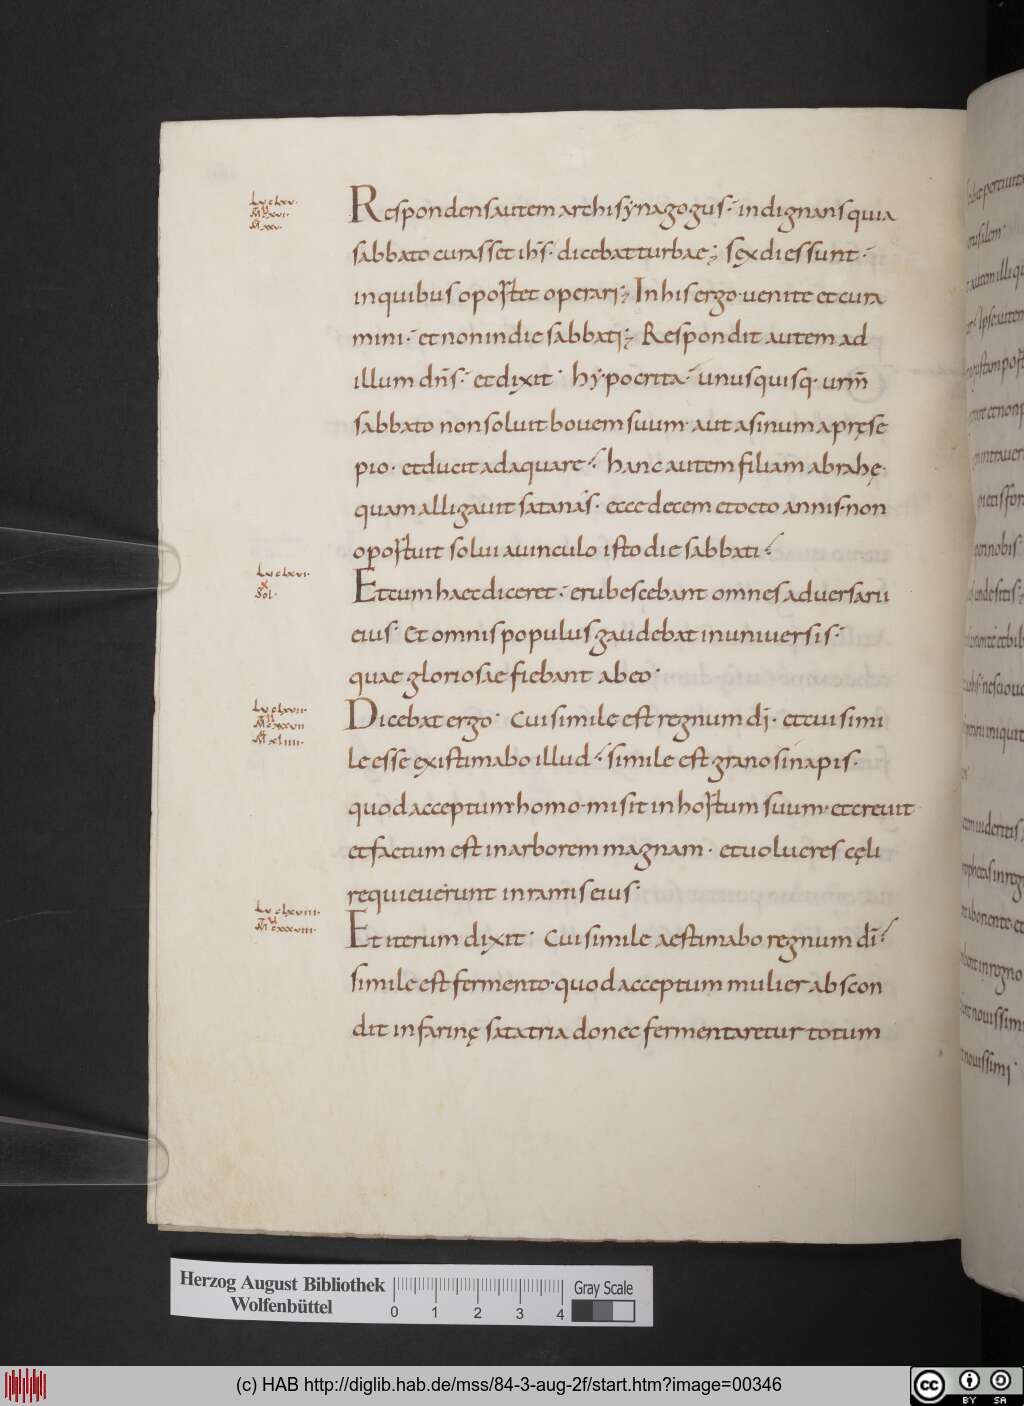 Lu clxv.
Respondens autem archisynagogus· indignans quia
sabbato curasset ihs̄· dicebat turbae; sex dies sunt·
in quibus oportet operari; In his ergo uenite et cura
mini· et non in die sabbati; Respondit autem ad
illum dn̄s· et dixit· hypocrita· unusquisq· urm̄
sabbato non soluit bouem suum· aut asinum a pręse
pio· et ducit adaquare· hanc autem filiam abrahę·
quam alligauit satanas· ecce decem et octo annis· non
oportuit solui a uinculo isto die sabbati·
Lu clxvi·
Sol·
Et cum haec diceret· erubescebant omnes aduersarii
eius· Et omnis populus gaudebat in uniuersis·
quae gloriosae fiebant ab eo·
Lu clxvii·
Mt cxxxvii
Mr xliiii·
Dicebat ergo· Cui simile est regnum dī· et cui simi
le esse existimabo illud· simile est grano sinapis·
quod acceptum homo· misit in hortum suum· et creuit
et factum est in arborem magnam· et uolucres cęli
requieuerunt in ramis eius·
Lu clxviii·
Mt cxxxviii·
Et iterum dixit· Cui simile aestimabo regnum dī·
simile est fermento· quod acceptum mulier abscon
dit in farinę sata tria donec fermentaretur totum
Herzog August Bibliothek
Wolfenbüttel
0 1 2 3 4
Gray Scale
(c) HAB http://diglib.hab.de/mss/84-3-aug-2f/start.htm?image=00346
cc BY SA